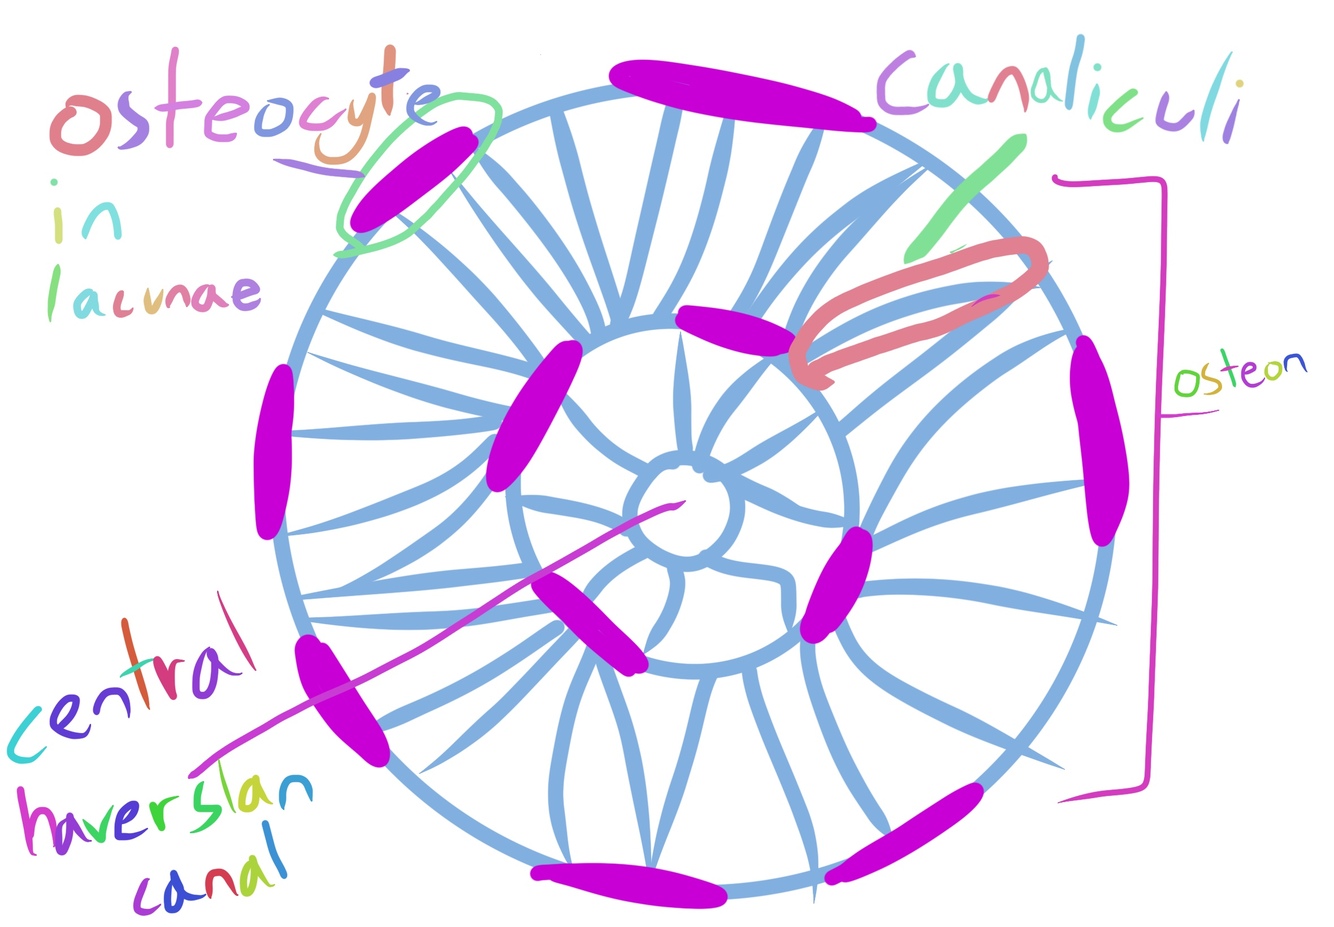 osteocyte
in
lacunae
canaliculi
osteon
central
haversian
canal